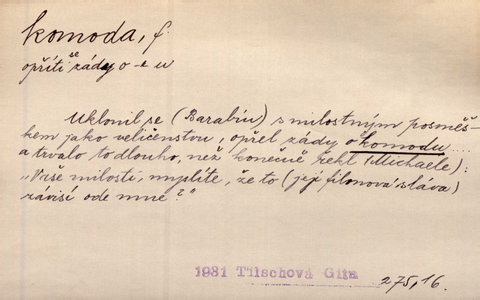 komoda, f.
opříti se zády o - e u
Uklonil se (Barabin) s milostným posměš-
kem jako veličenstvu, opřel zády o komodu...
a trvalo to dlouho, než konečně řekl (Michaele):
„Vaše milosti, myslíte, že to (její filmová sláva)
závisí ode mne?"
1931 Tilschová Gita
275,16.